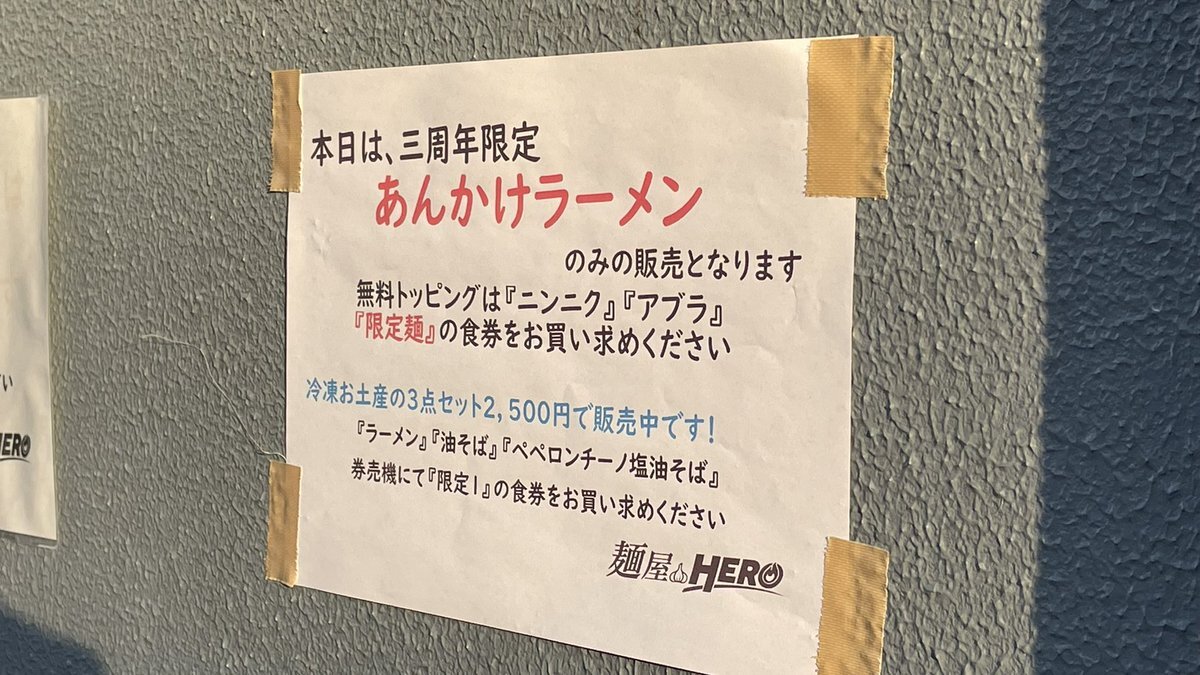 本日は、三周年限定
あんかけラーメン
のみの販売となります
無料トッピングは『ニンニク』『アブラ』
『限定麺』の食券をお買い求めください
冷凍お土産の3点セット2,500円で販売中です!
『ラーメン』『油そば』『ペペロンチーノ塩油そば』
券売機にて『限定1』の食券をお買い求めください
麺屋HERO